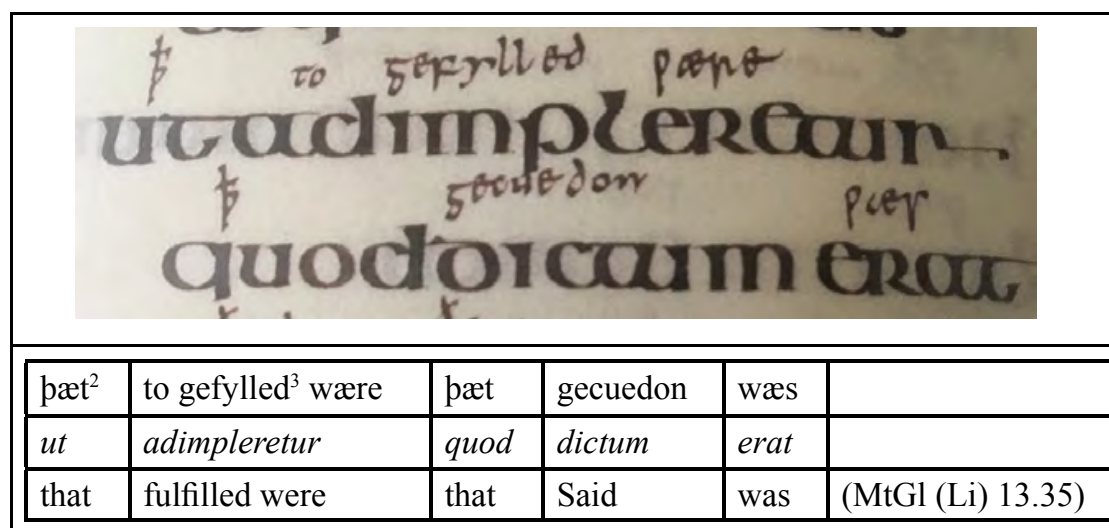 ꝥ to gefylled ƿære
utadimpleretur
ꝥ gecuedon ƿæs
quoddictum erat
þæt² to gefylled³ wære þæt gecuedon wæs
ut adimpleretur quod dictum erat
that fulfilled were that Said was (MtGl (Li) 13.35)